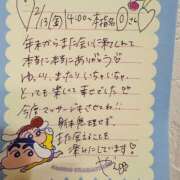 2/13(金) 4:00〜 本指名 Oさん
年末からまた会いに来てくれて
本当に本当にありがとう♡
ゆったり、まったり、いちゃいちゃ、
とっても楽しく幸せでした♡
今度マッサージもさせてね!!
また会えることを
楽しみにしています♡